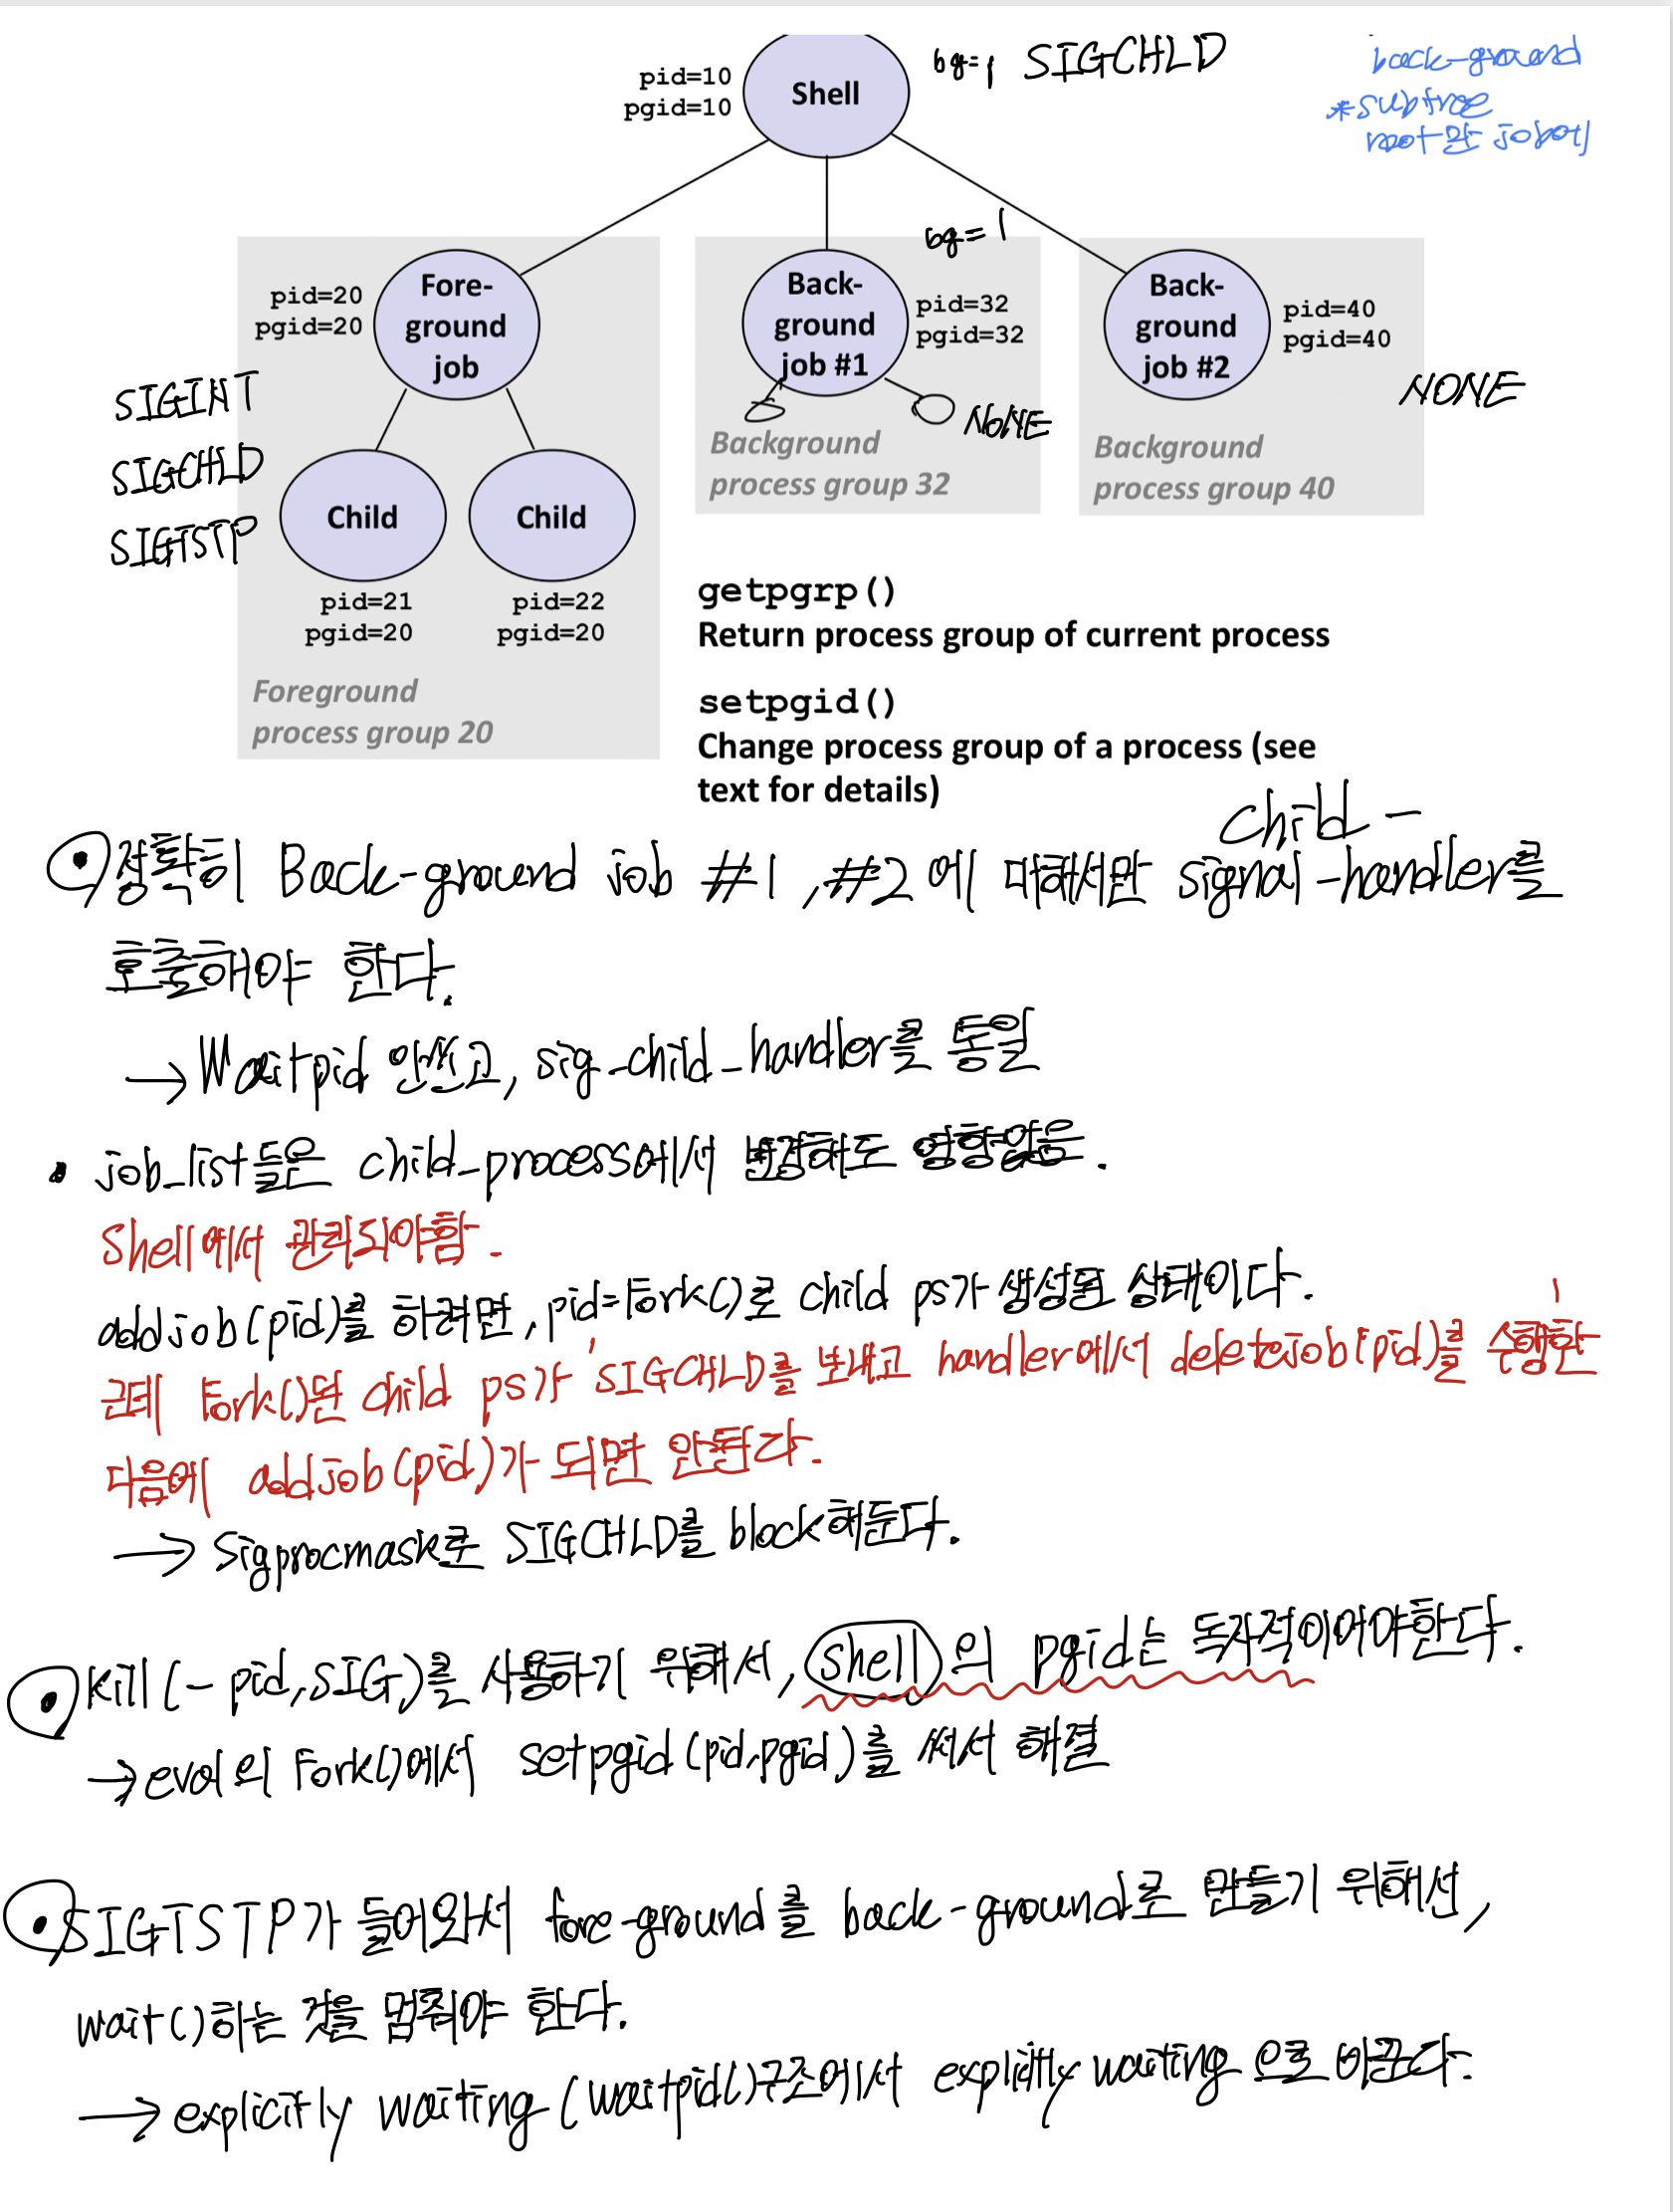 pid=10
pgid=10
Shell
bg=1 SIGCHLD
back-ground
*subtree
root만 job에
bg=1
pid=20
pgid=20
Fore-
ground
job
Back-
ground
job #1
pid=32
pgid=32
Back-
ground
job #2
pid=40
pgid=40
SIGINT
SIGCHLD
SIGTSTP
NONE
NONE
Background
process group 32
Background
process group 40
Child
Child
pid=21
pgid=20
pid=22
pgid=20
Foreground
process group 20
getpgrp()
Return process group of current process
setpgid()
Change process group of a process (see
text for details)
child -
정확히 Back-ground job #1, #2에 대해서만 signal-handler를
호출해야 한다.
→ Waitpid 안쓰고, sig_child_handler를 통일
• job_list들은 child_process에서 변경해도 영향없음.
Shell에서 관리되야함.
addjob(pid)를 하려면, pid=fork()로 child ps가 생성된 상태이다.
근데 fork()된 child ps가 'SIGCHLD를 보내고 handler에서 deletejob(pid)를 수행한'
다음에 addjob(pid)가 되면 안된다.
→ Sigprocmask로 SIGCHLD를 block해둔다.
• kill(-pid, SIG)를 사용하기 위해서, shell의 pgid는 독자적이어야한다.
→ eval의 Fork()에서 setpgid(pid, pgid)를 써서 해결
• SIGTSTP가 들어와서 fore-ground를 back-ground로 만들기 위해선,
wait()하는 것을 멈춰야 한다.
→ explicitly waiting (waitpid()구조에서 explicitly waiting으로 바꾼다.